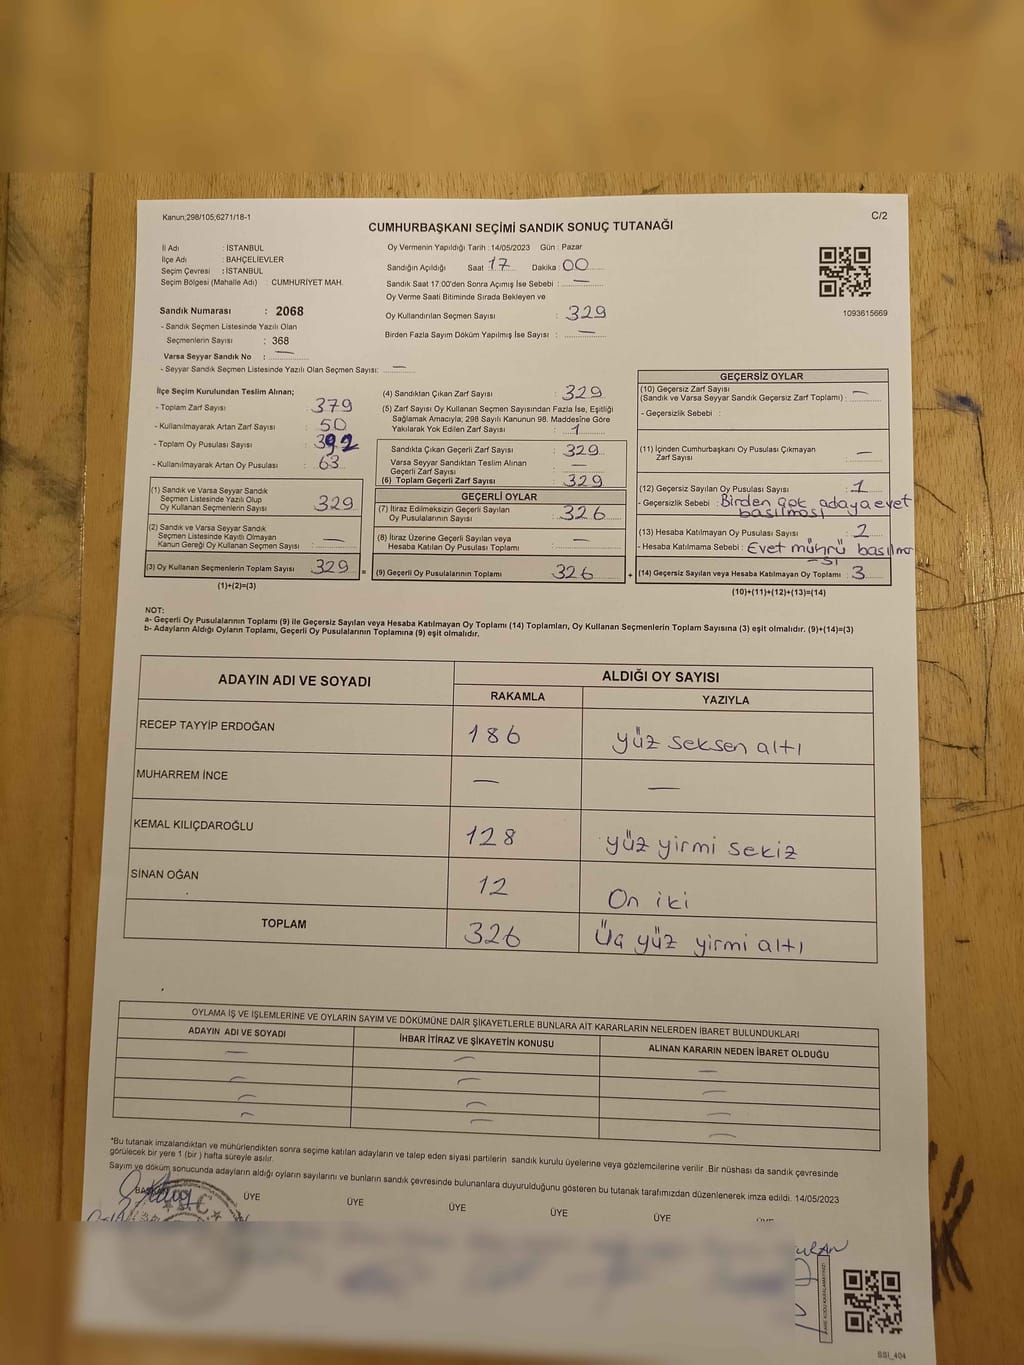 Kanun;298/105;6271/18-1
C/2
CUMHURBAŞKANI SEÇİMİ SANDIK SONUÇ TUTANAĞI
İl Adı : İSTANBUL
İlçe Adı : BAHÇELİEVLER
Seçim Çevresi : İSTANBUL
Seçim Bölgesi (Mahalle Adı) : CUMHURİYET MAH.
Oy Vermenin Yapıldığı Tarih : 14/05/2023 Gün : Pazar
Sandığın Açıldığı Saat 17 Dakika : 00
Sandık Saat 17:00'den Sonra Açımış İse Sebebi : —
Oy Verme Saati Bitiminde Sırada Bekleyen ve
Oy Kullandırılan Seçmen Sayısı : 329
Birden Fazla Sayım Döküm Yapılmış İse Sayısı : —
1093615669
Sandık Numarası : 2068
- Sandık Seçmen Listesinde Yazılı Olan
Seçmenlerin Sayısı : 368
Varsa Seyyar Sandık No : —
- Seyyar Sandık Seçmen Listesinde Yazılı Olan Seçmen Sayısı: —
İlçe Seçim Kurulundan Teslim Alınan;
- Toplam Zarf Sayısı : 379
- Kullanılmayarak Artan Zarf Sayısı : 50
- Toplam Oy Pusulası Sayısı : 392
- Kullanılmayarak Artan Oy Pusulası : 63
(1) Sandık ve Varsa Seyyar Sandık
Seçmen Listesinde Yazılı Olup
Oy Kullanan Seçmenlerin Sayısı : 329
(2) Sandık ve Varsa Seyyar Sandık
Seçmen Listesinde Kayıtlı Olmayan
Kanun Gereği Oy Kullanan Seçmen Sayısı : —
(3) Oy Kullanan Seçmenlerin Toplam Sayısı : 329 =
(1)+(2)=(3)
(4) Sandıktan Çıkan Zarf Sayısı : 329
(5) Zarf Sayısı Oy Kullanan Seçmen Sayısından Fazla İse, Eşitliği
Sağlamak Amacıyla; 298 Sayılı Kanunun 98. Maddesine Göre
Yakılarak Yok Edilen Zarf Sayısı : 1
Sandıkta Çıkan Geçerli Zarf Sayısı : 329
Varsa Seyyar Sandıktan Teslim Alınan
Geçerli Zarf Sayısı : —
(6) Toplam Geçerli Zarf Sayısı : 329
GEÇERLİ OYLAR
(7) İtiraz Edilmeksizin Geçerli Sayılan
Oy Pusulalarının Sayısı : 326
(8) İtiraz Üzerine Geçerli Sayılan veya
Hesaba Katılan Oy Pusulası Toplamı : —
(9) Geçerli Oy Pusulalarının Toplamı : 326 +
GEÇERSİZ OYLAR
(10) Geçersiz Zarf Sayısı
(Sandık ve Varsa Seyyar Sandık Geçersiz Zarf Toplamı) : —
- Geçersizlik Sebebi :
(11) İçinden Cumhurbaşkanı Oy Pusulası Çıkmayan
Zarf Sayısı : —
(12) Geçersiz Sayılan Oy Pusulası Sayısı : 1
- Geçersizlik Sebebi : Birden çok adaya evet
basılması
(13) Hesaba Katılmayan Oy Pusulası Sayısı : 2
- Hesaba Katılmama Sebebi : Evet mührü basılma
sı
(14) Geçersiz Sayılan veya Hesaba Katılmayan Oy Toplamı : 3
(10)+(11)+(12)+(13)=(14)
NOT:
a- Geçerli Oy Pusulalarının Toplamı (9) ile Geçersiz Sayılan veya Hesaba Katılmayan Oy Toplamı (14) Toplamları, Oy Kullanan Seçmenlerin Toplam Sayısına (3) eşit olmalıdır. (9)+(14)=(3)
b- Adayların Aldığı Oyların Toplamı, Geçerli Oy Pusulalarının Toplamına (9) eşit olmalıdır.
ADAYIN ADI VE SOYADI ALDIĞI OY SAYISI
RAKAMLA YAZIYLA
RECEP TAYYİP ERDOĞAN 186 yüz seksen altı
MUHARREM İNCE — —
KEMAL KILIÇDAROĞLU 128 yüz yirmi sekiz
SİNAN OĞAN 12 On iki
TOPLAM 326 Üç yüz yirmi altı
OYLAMA İŞ VE İŞLEMLERİNE VE OYLARIN SAYIM VE DÖKÜMÜNE DAİR ŞİKAYETLERLE BUNLARA AİT KARARLARIN NELERDEN İBARET BULUNDUKLARI
ADAYIN ADI VE SOYADI İHBAR İTİRAZ VE ŞİKAYETİN KONUSU ALINAN KARARIN NEDEN İBARET OLDUĞU
— — —
— — —
— — —
— — —
*Bu tutanak imzalandıktan ve mühürlendikten sonra seçime katılan adayların ve talep eden siyasi partilerin sandık kurulu üyelerine veya gözlemcilerine verilir .Bir nüshası da sandık çevresinde
görülecek bir yere 1 (bir ) hafta süreyle asılır.
Sayım ve döküm sonucunda adayların aldığı oyların sayılarını ve bunların sandık çevresinde bulunanlara duyurulduğunu gösteren bu tutanak tarafımızdan düzenlenerek imza edildi. 14/05/2023
BAŞKAN ÜYE ÜYE ÜYE ÜYE ÜYE ÜYE
T.C.
SSI_404